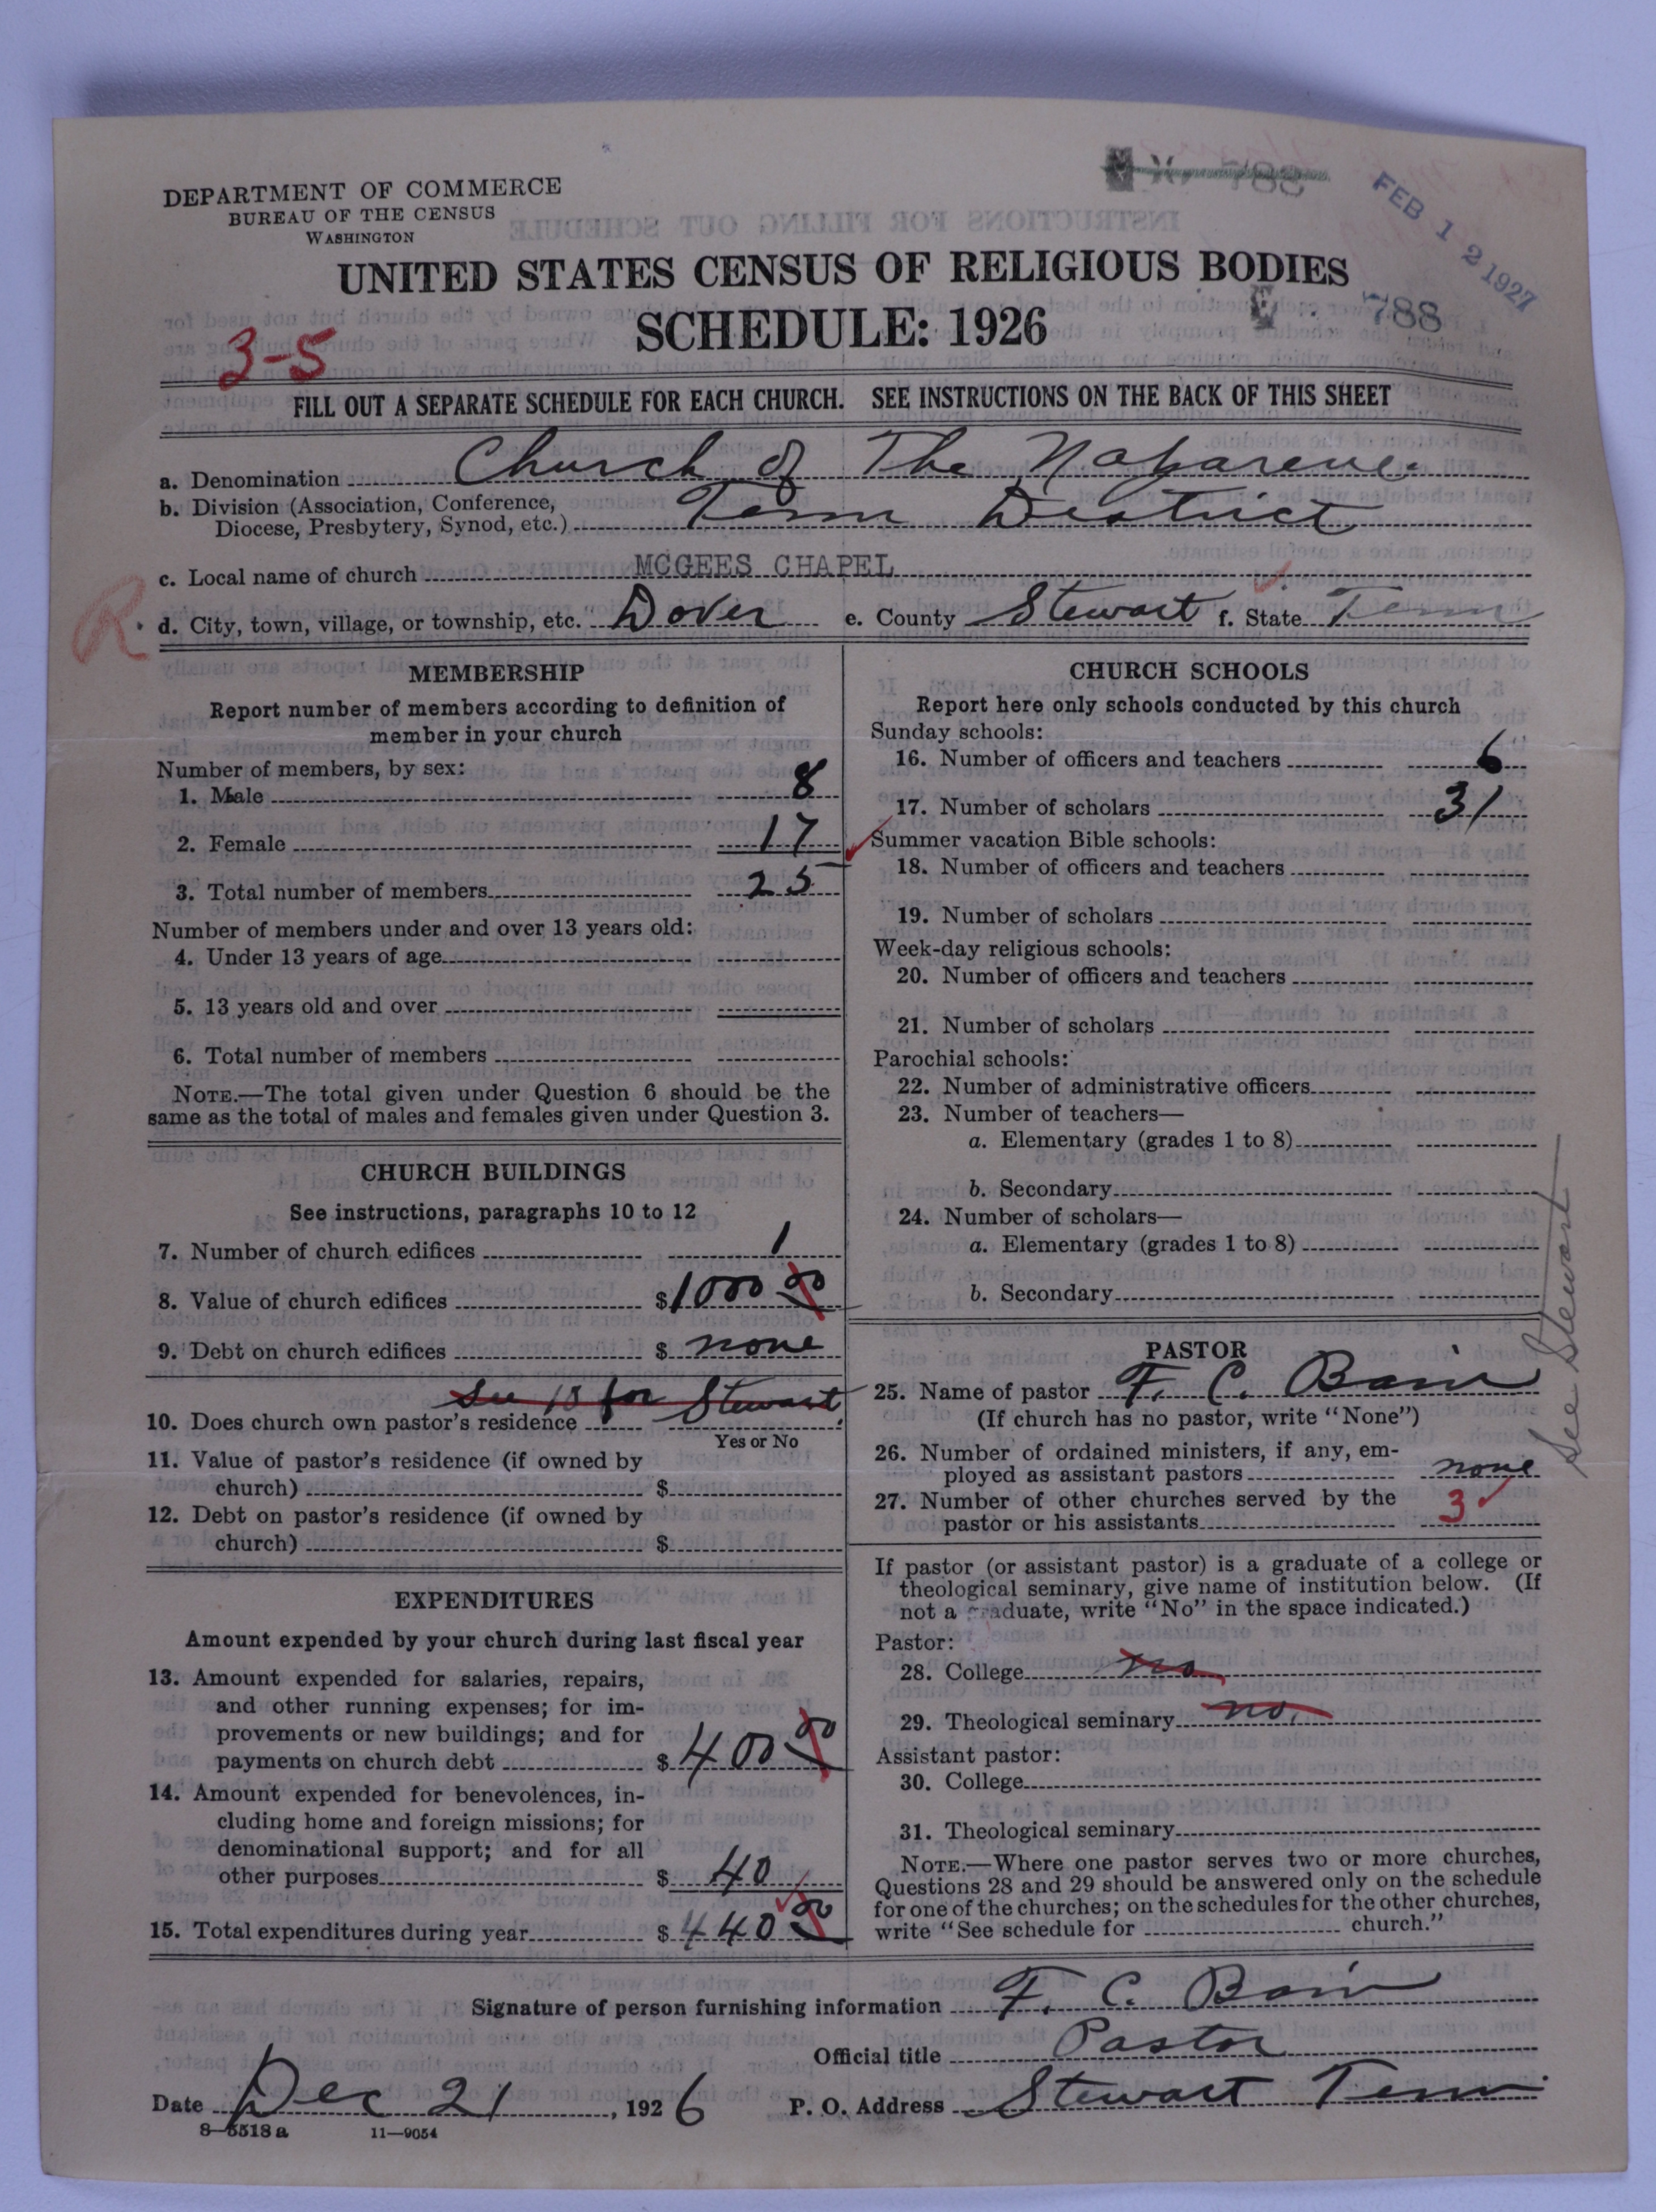 DEPARTMENT OF COMMERCE
BUREAU OF THE CENSUS
WASHINGTON
FEB 12 1927
UNITED STATES CENSUS OF RELIGIOUS BODIES
SCHEDULE: 1926
788
3-5
FILL OUT A SEPARATE SCHEDULE FOR EACH CHURCH. SEE INSTRUCTIONS ON THE BACK OF THIS SHEET
a. Denomination Church of The Nazarene.
b. Division (Association, Conference,
Diocese, Presbytery, Synod, etc.) Tenn District
c. Local name of church MCGEES CHAPEL
R
d. City, town, village, or township, etc. Dover e. County Stewart f. State Tenn
MEMBERSHIP
Report number of members according to definition of
member in your church
Number of members, by sex:
1. Male 8
2. Female 17
3. Total number of members 25
Number of members under and over 13 years old:
4. Under 13 years of age
5. 13 years old and over
6. Total number of members
NOTE.—The total given under Question 6 should be the
same as the total of males and females given under Question 3.
CHURCH BUILDINGS
See instructions, paragraphs 10 to 12
7. Number of church edifices 1
8. Value of church edifices $1000 00
9. Debt on church edifices $ none
See 18 for Stewart
10. Does church own pastor's residence
Yes or No
11. Value of pastor's residence (if owned by
church) $
12. Debt on pastor's residence (if owned by
church) $
EXPENDITURES
Amount expended by your church during last fiscal year
13. Amount expended for salaries, repairs,
and other running expenses; for im-
provements or new buildings; and for
payments on church debt $ 400 00
14. Amount expended for benevolences, in-
cluding home and foreign missions; for
denominational support; and for all
other purposes $ 40
15. Total expenditures during year $ 440 00
CHURCH SCHOOLS
Report here only schools conducted by this church
Sunday schools:
16. Number of officers and teachers 6
17. Number of scholars 31
Summer vacation Bible schools:
18. Number of officers and teachers
19. Number of scholars
Week-day religious schools:
20. Number of officers and teachers
21. Number of scholars
Parochial schools:
22. Number of administrative officers
23. Number of teachers—
a. Elementary (grades 1 to 8)
b. Secondary
24. Number of scholars—
a. Elementary (grades 1 to 8)
b. Secondary
See Stewart
PASTOR
25. Name of pastor F. C. Bain
(If church has no pastor, write "None")
26. Number of ordained ministers, if any, em-
ployed as assistant pastors none
27. Number of other churches served by the
pastor or his assistants 3
If pastor (or assistant pastor) is a graduate of a college or
theological seminary, give name of institution below. (If
not a graduate, write "No" in the space indicated.)
Pastor:
28. College no
29. Theological seminary no.
Assistant pastor:
30. College
31. Theological seminary
NOTE.—Where one pastor serves two or more churches,
Questions 28 and 29 should be answered only on the schedule
for one of the churches; on the schedules for the other churches,
write "See schedule for church."
Signature of person furnishing information F. C. Bain
Official title Pastor
Date Dec 21, 1926 P. O. Address Stewart Tenn.
8—5518a 11—9054